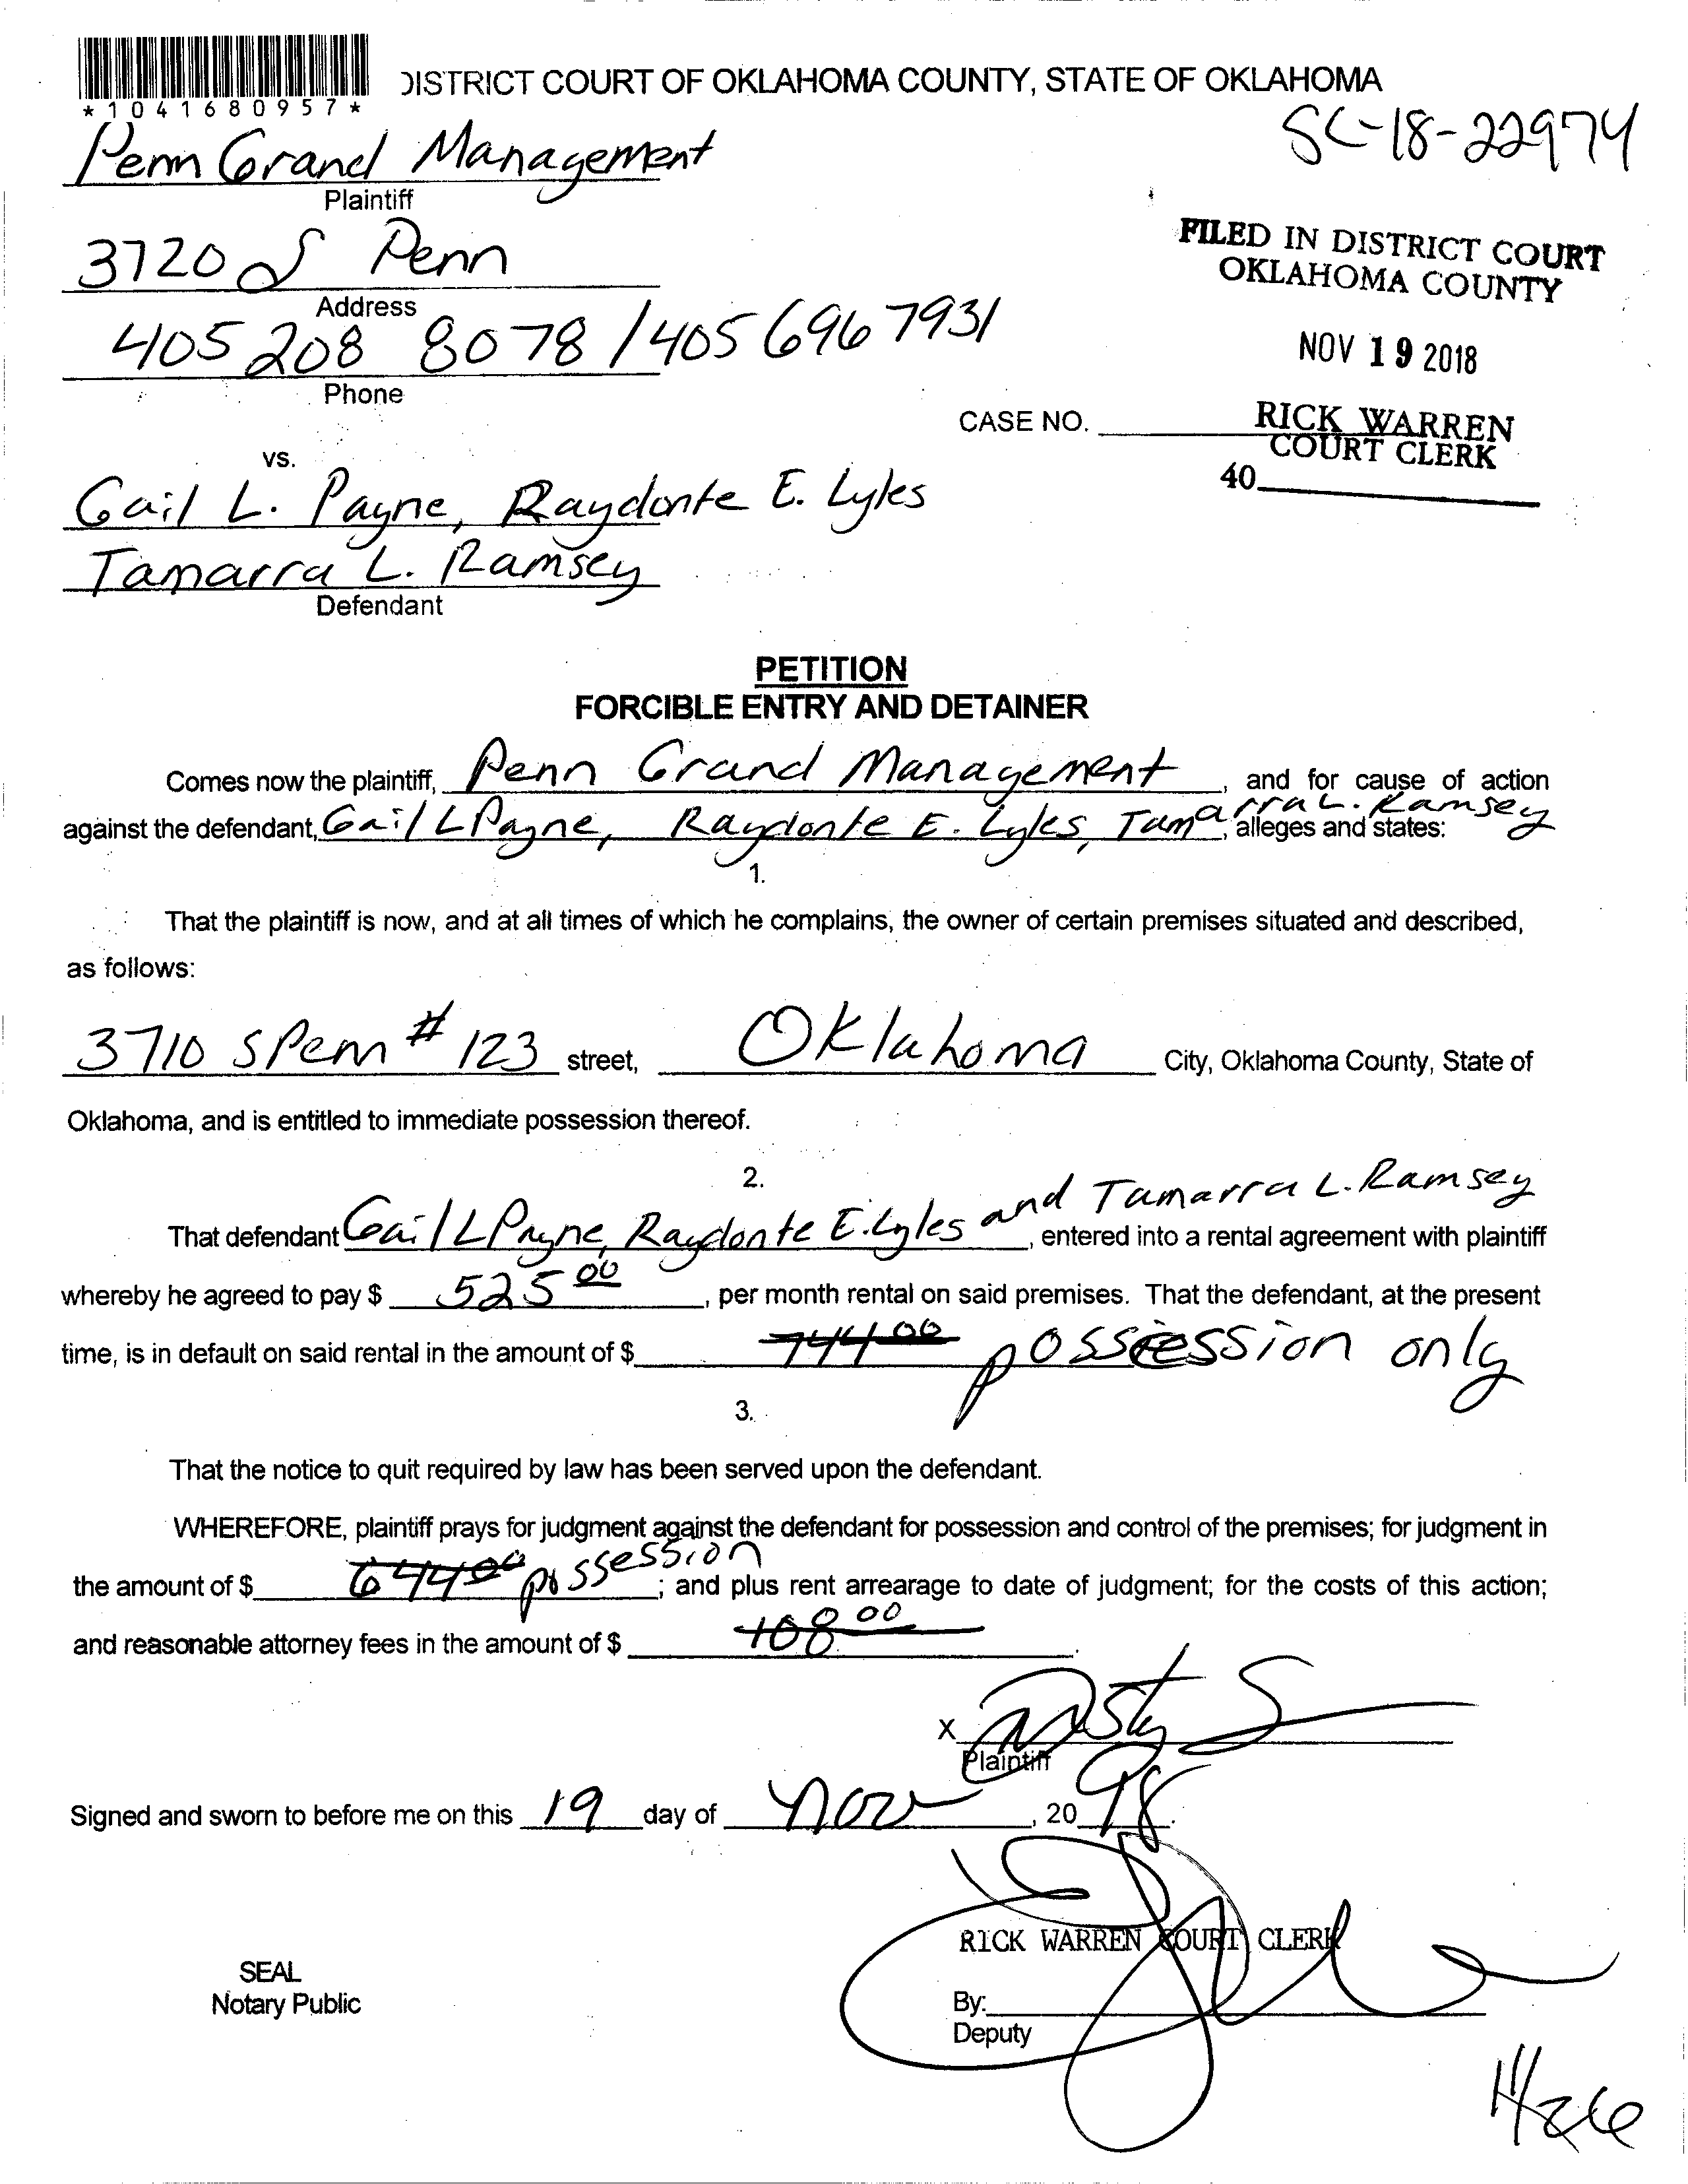 DISTRICT COURT OF OKLAHOMA COUNTY, STATE OF OKLAHOMA
*1041680957*
SC-18-22974
Penn Grand Management
Plaintiff
3720 S Penn
Address
405 208 8078 / 405 696 7931
Phone
FILED IN DISTRICT COURT
OKLAHOMA COUNTY
NOV 19 2018
RICK WARREN
COURT CLERK
40
CASE NO.
vs.
Gail L. Payne, Raydonte E. Lyles
Tamarra L. Ramsey
Defendant
PETITION
FORCIBLE ENTRY AND DETAINER
Comes now the plaintiff, Penn Grand Management, and for cause of action
against the defendant, Gail L Payne, Raydonte E. Lyles, Tamarra L. Ramsey, alleges and states:
1.
That the plaintiff is now, and at all times of which he complains, the owner of certain premises situated and described,
as follows:
3710 S Penn # 123 street, Oklahoma City, Oklahoma County, State of
Oklahoma, and is entitled to immediate possession thereof.
2.
That defendant Gail L Payne, Raydonte E. Lyles and Tamarra L. Ramsey, entered into a rental agreement with plaintiff
whereby he agreed to pay $ 525 00, per month rental on said premises. That the defendant, at the present
time, is in default on said rental in the amount of $ 744 00 possession only
3.
That the notice to quit required by law has been served upon the defendant.
WHEREFORE, plaintiff prays for judgment against the defendant for possession and control of the premises; for judgment in
the amount of $ 644 00 possession; and plus rent arrearage to date of judgment; for the costs of this action;
and reasonable attorney fees in the amount of $ 108 00.
X
Plaintiff
Signed and sworn to before me on this 19 day of Nov, 20 18.
RICK WARREN COURT CLERK
SEAL
Notary Public
By:
Deputy
11/26